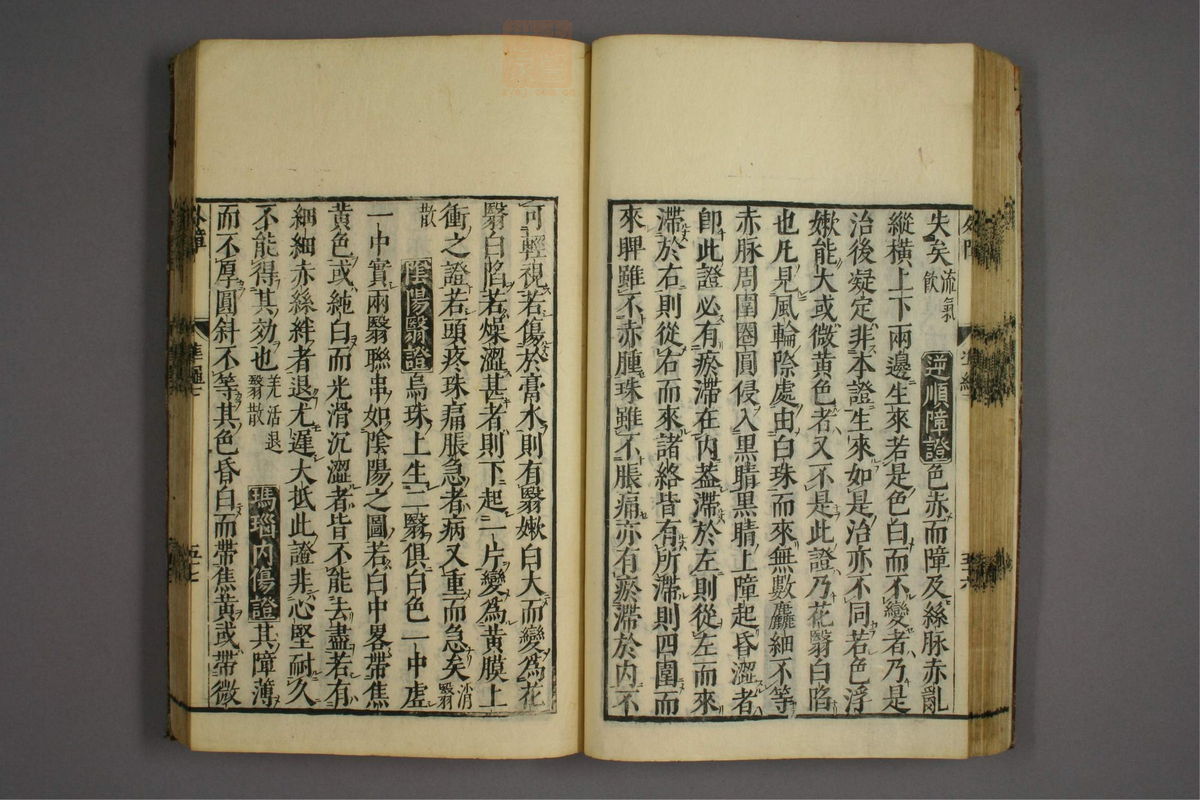 失矣流氣飲逆順障證色赤而障及絲脉赤亂
縱橫上下兩邊生來若是色白而不變者乃是
治後凝定非本證生來如是治亦不同若色浮
嫰能大或微黃色者又不是此證乃花翳白陷
也凡見風輪際處由白珠而來無數麤細不等
赤脉周圍圈圓侵入黑睛黑睛上障起昏澀者
卽此證必有瘀滯在内葢滯於左則從左而來
滯於右則從右而來諸絡皆有所滯則四圍而
來睥雖不赤腫珠雖不脹痛亦有瘀滯於内不
可輕視若傷於膏水則有翳嫰白大而變爲花
翳白陷若燥澀甚者則下起一片變爲黃膜上
衝之證若頭疼珠痛脹急者病又重而急矣消翳
散陰陽翳證烏珠上生二翳俱白色一中虛
一中實兩翳聯串如陰陽之圖若白中畧帶焦
黃色或純白而光滑沉澀者皆不能去盡若有
細細赤絲絆者退尤遲大抵此證非心堅耐久
不能得其効也羌活退翳散瑪瑙内傷證其障薄
而不厚圓斜不等其色昏白而帶焦黃或帶微